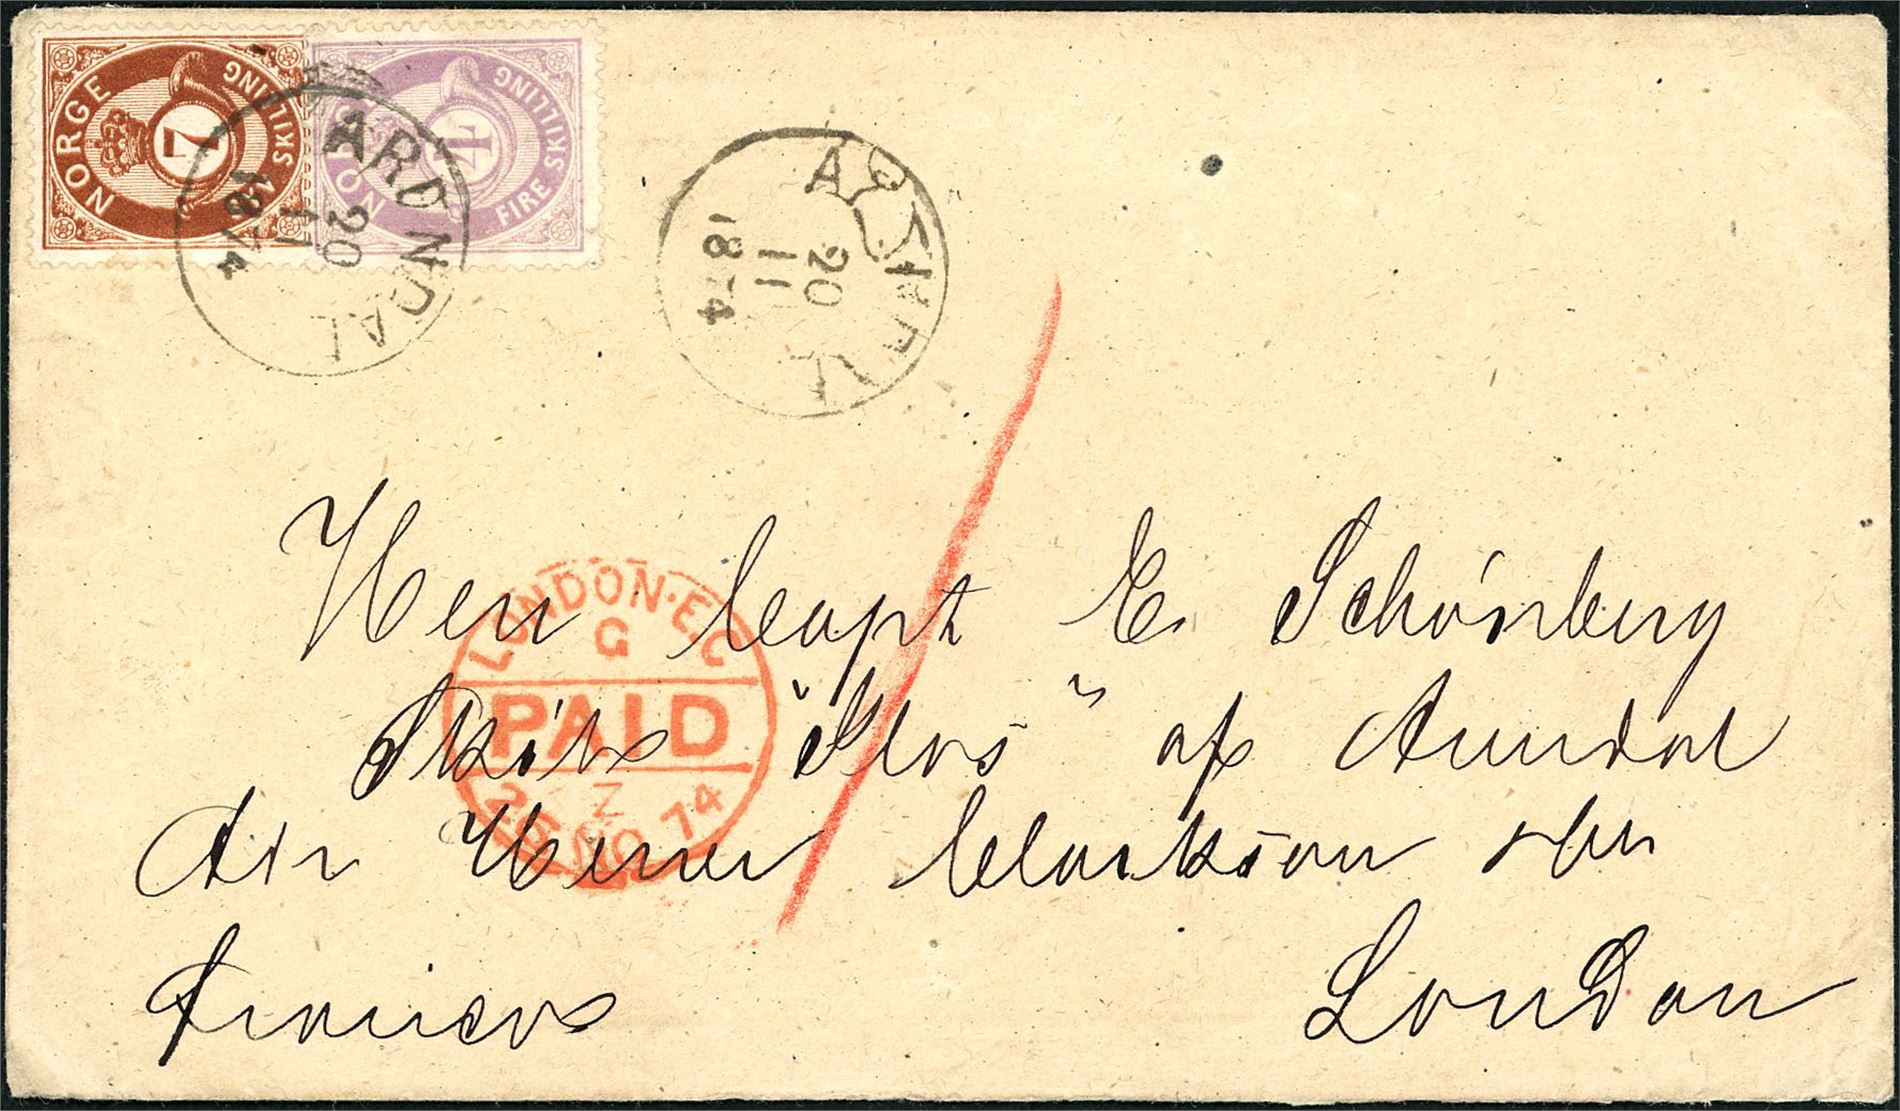 NORGE
7
SYV SKILLING
NORGE
4
FIRE SKILLING
ARENDAL
20
11
1874
ARENDAL
20
11
1874
LONDON·E.C
G
PAID
Z
25 NO 74
Herr Capt E. Schönberg
Skib " " af Arendal
Adr Herrer Clarkson
London
Franco